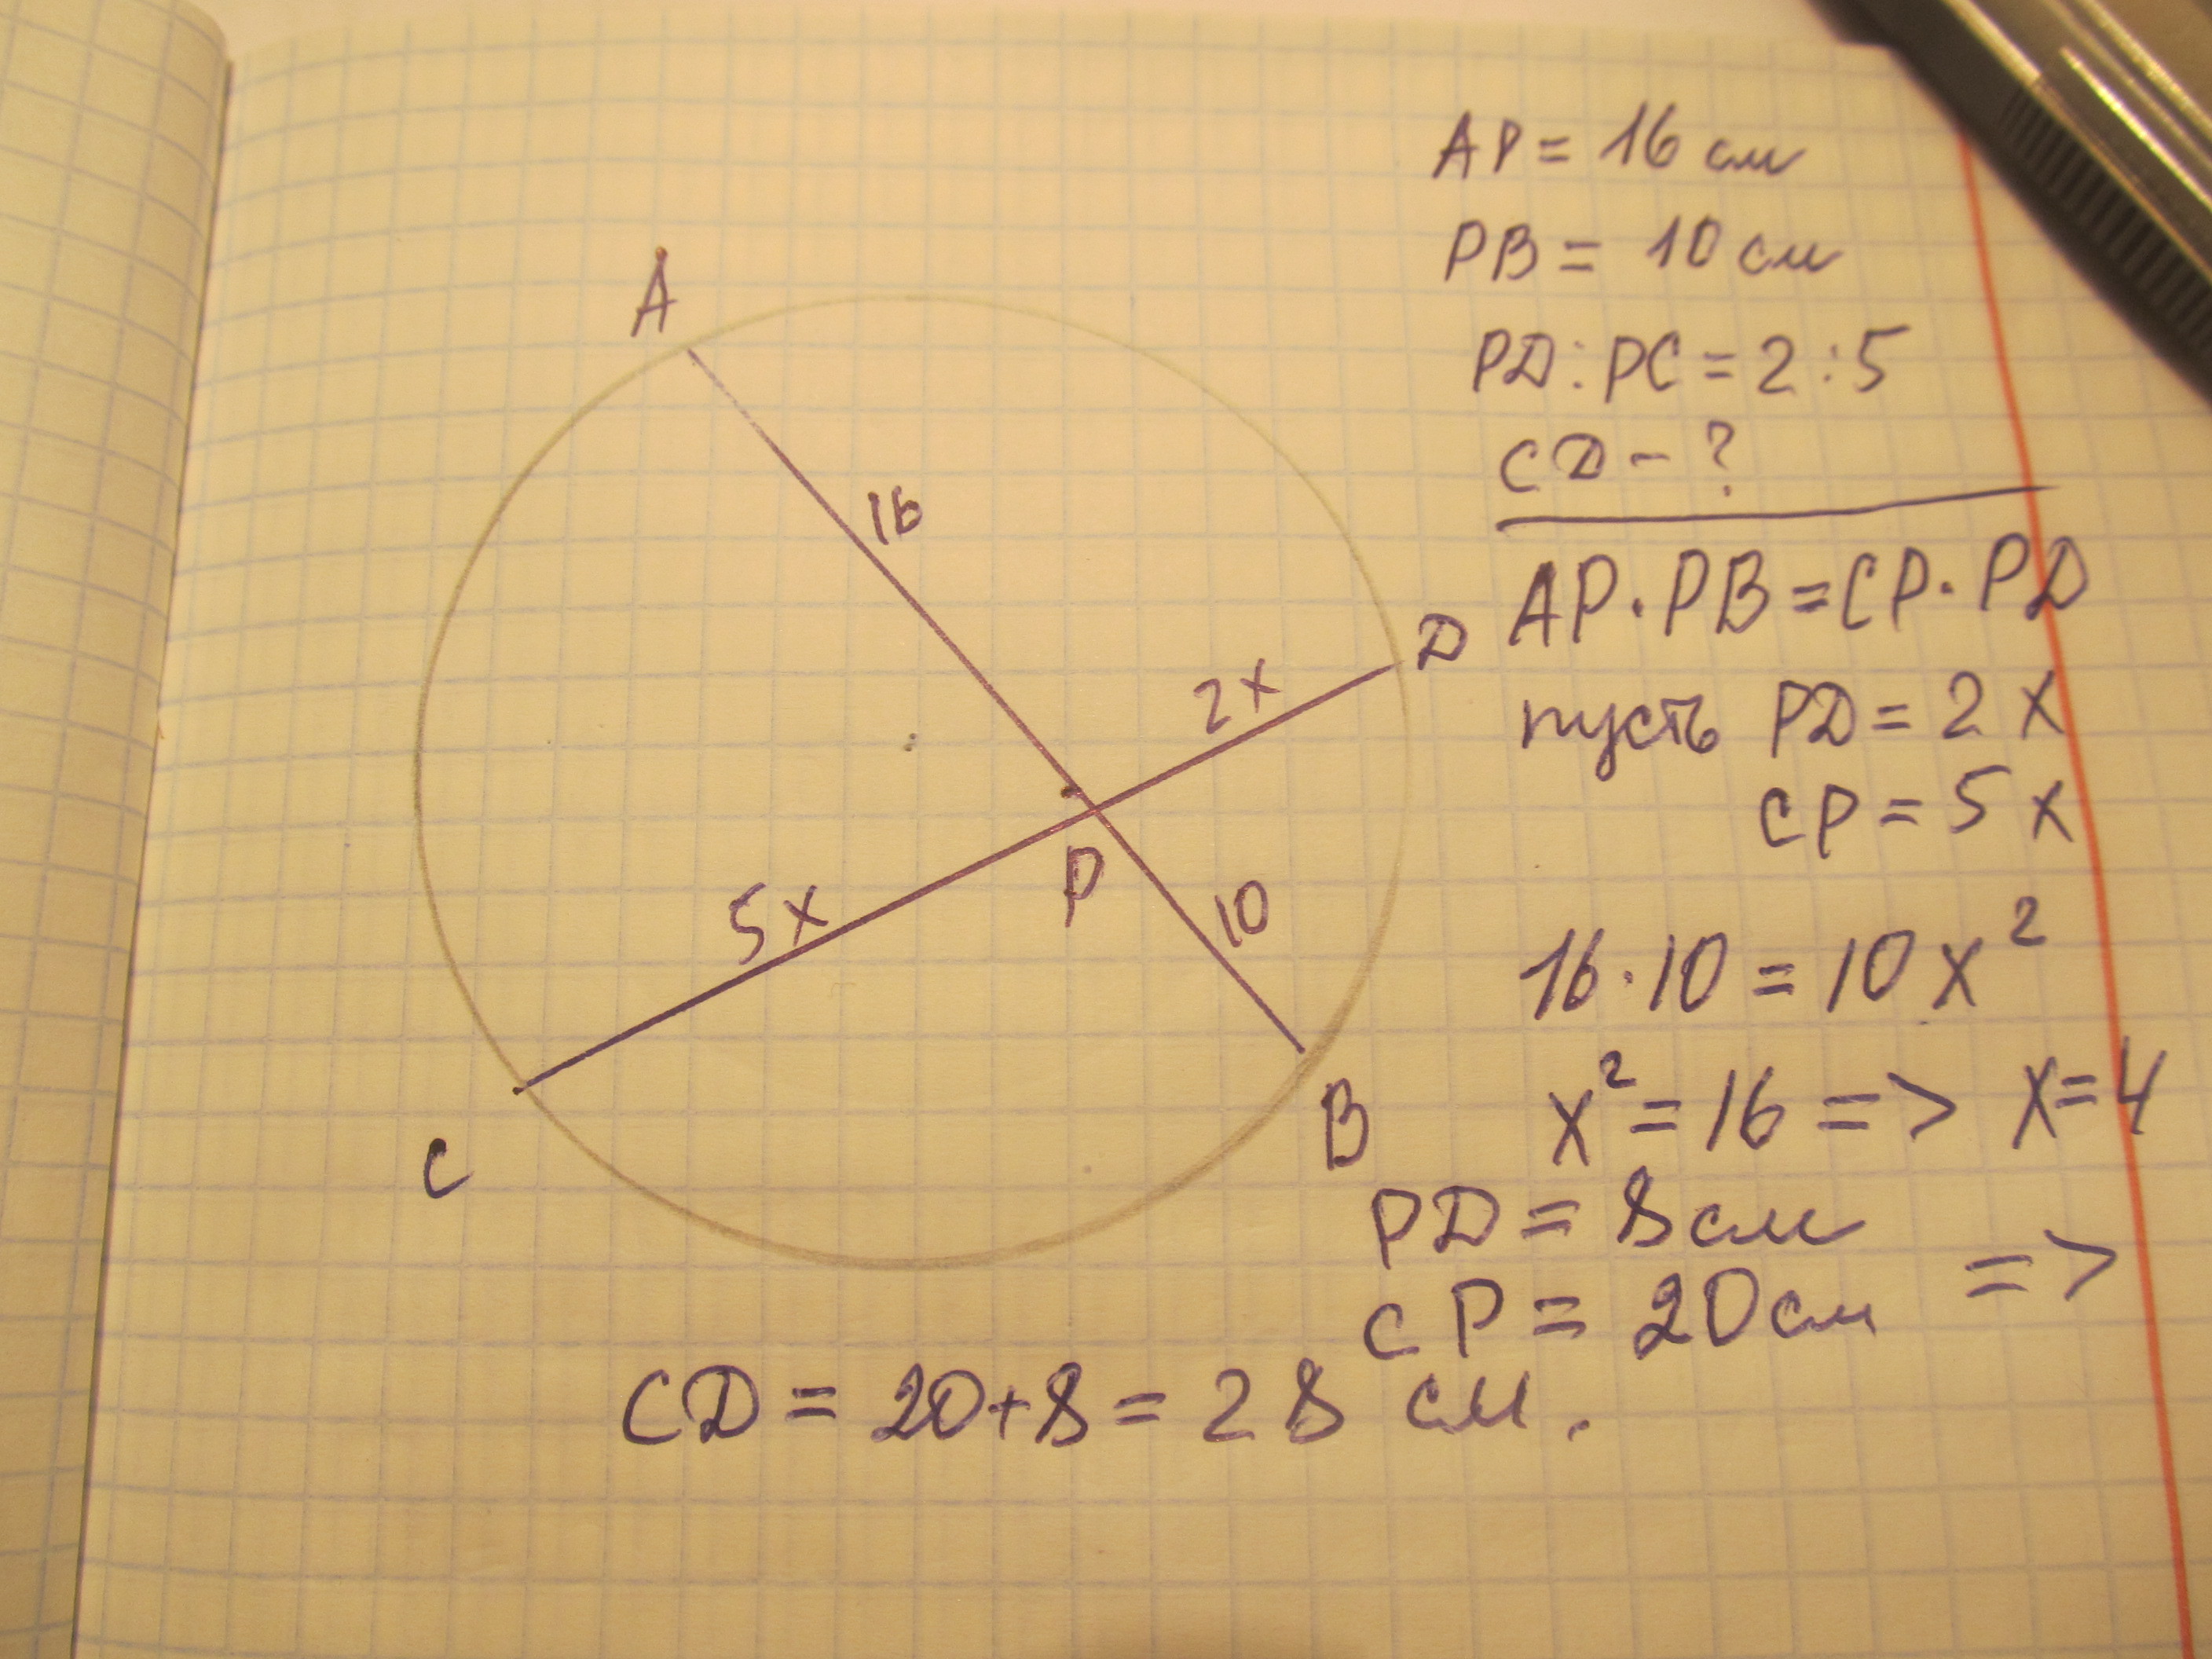 AP = 16 см
PB = 10 см
PD : PC = 2 : 5
CD - ?
AP · PB = CP · PD
пусть PD = 2x
CP = 5x
16 · 10 = 10x²
x² = 16 => x = 4
PD = 8 см
CP = 20 см =>
CD = 20 + 8 = 28 см.
A
16
D
2x
P
5x
10
C
B